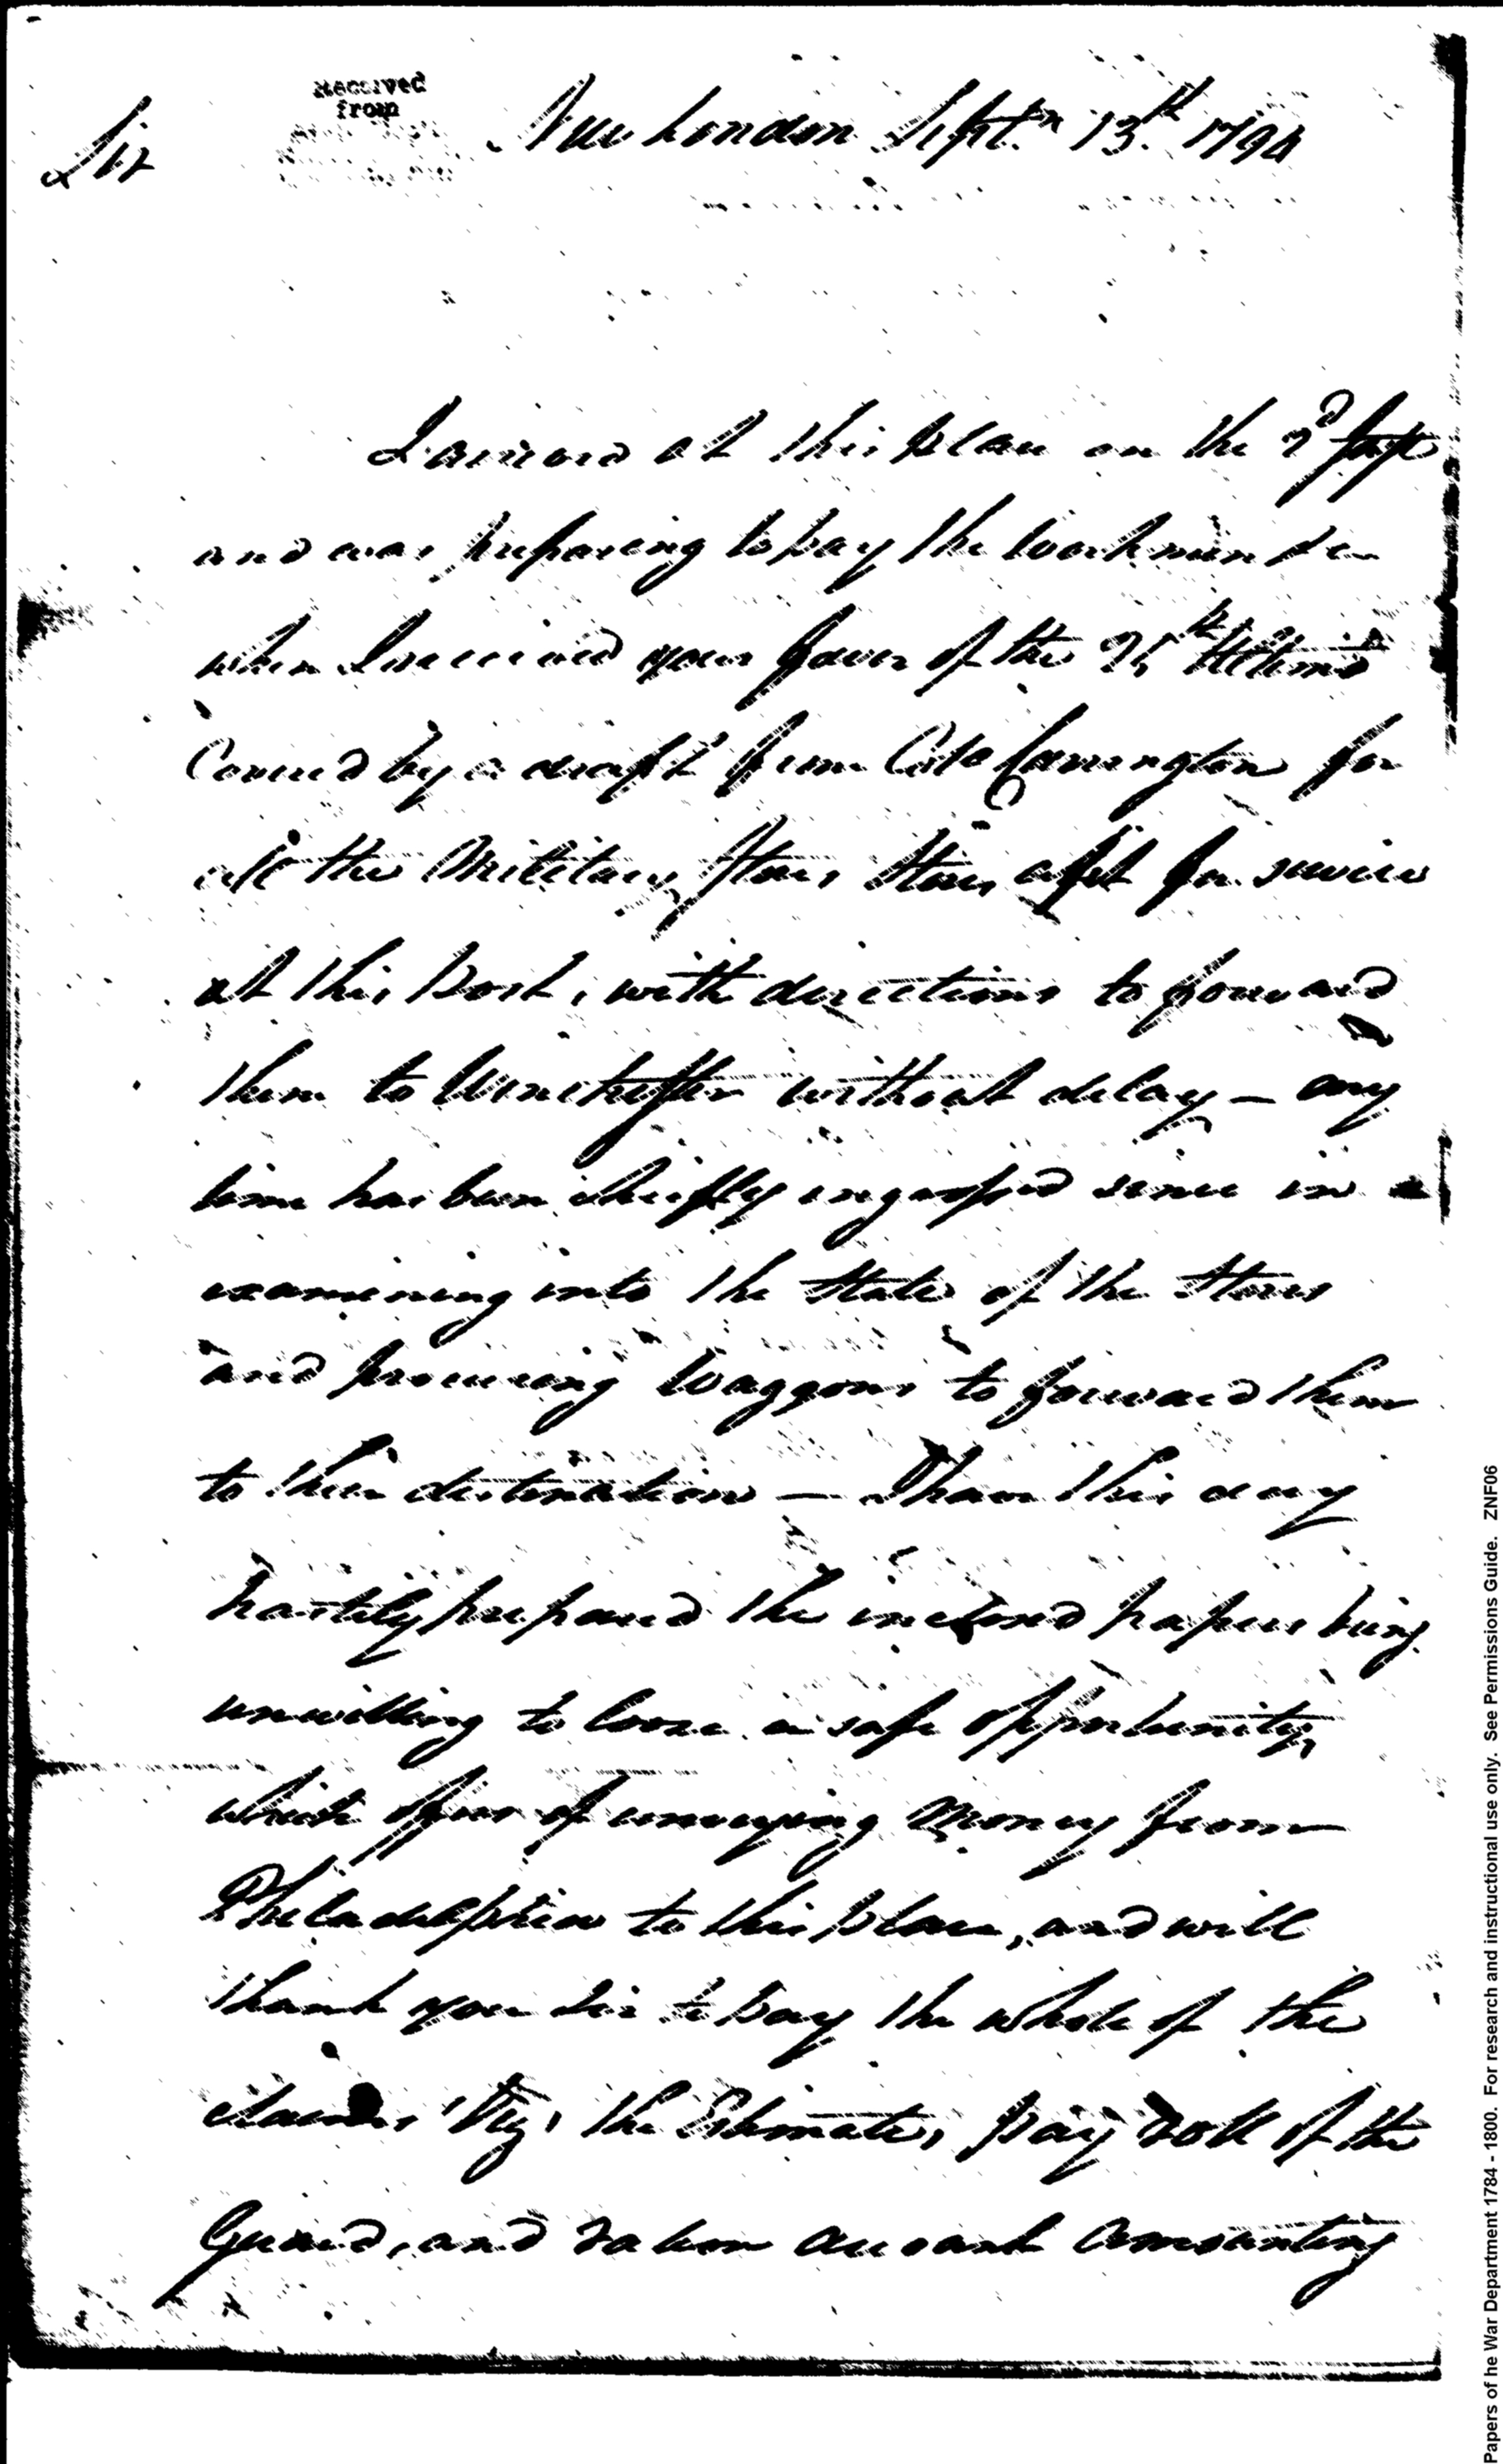 Received
from
New London Septr. 13th. 1794
Sir
I arrived at this place on the 2d
and was preparing to pay the workmen &c
when I received your favor of the 25th Ultimo
Covered by a draft from Colo Carrington for
all the Military Stores Stores afit for service
at this Post, with directions to forward
them to Winchester without delay — my
time has been chiefly ingrossed since in
examining into the State of the Stores
and procuring Waggons to forward them
to their destination — I have this day
hastily prepared the inclosed papers being
unwilling to loose a safe opportunity,
which offers of conveying Money from
Philadelphia to this place, and will
thank you Sir to pay the whole of the
claims, Viz, the Estimate, pay roll of the
Guard, and ration account amounting
Papers of he War Department 1784 - 1800. For research and instructional use only. See Permissions Guide. ZNF06